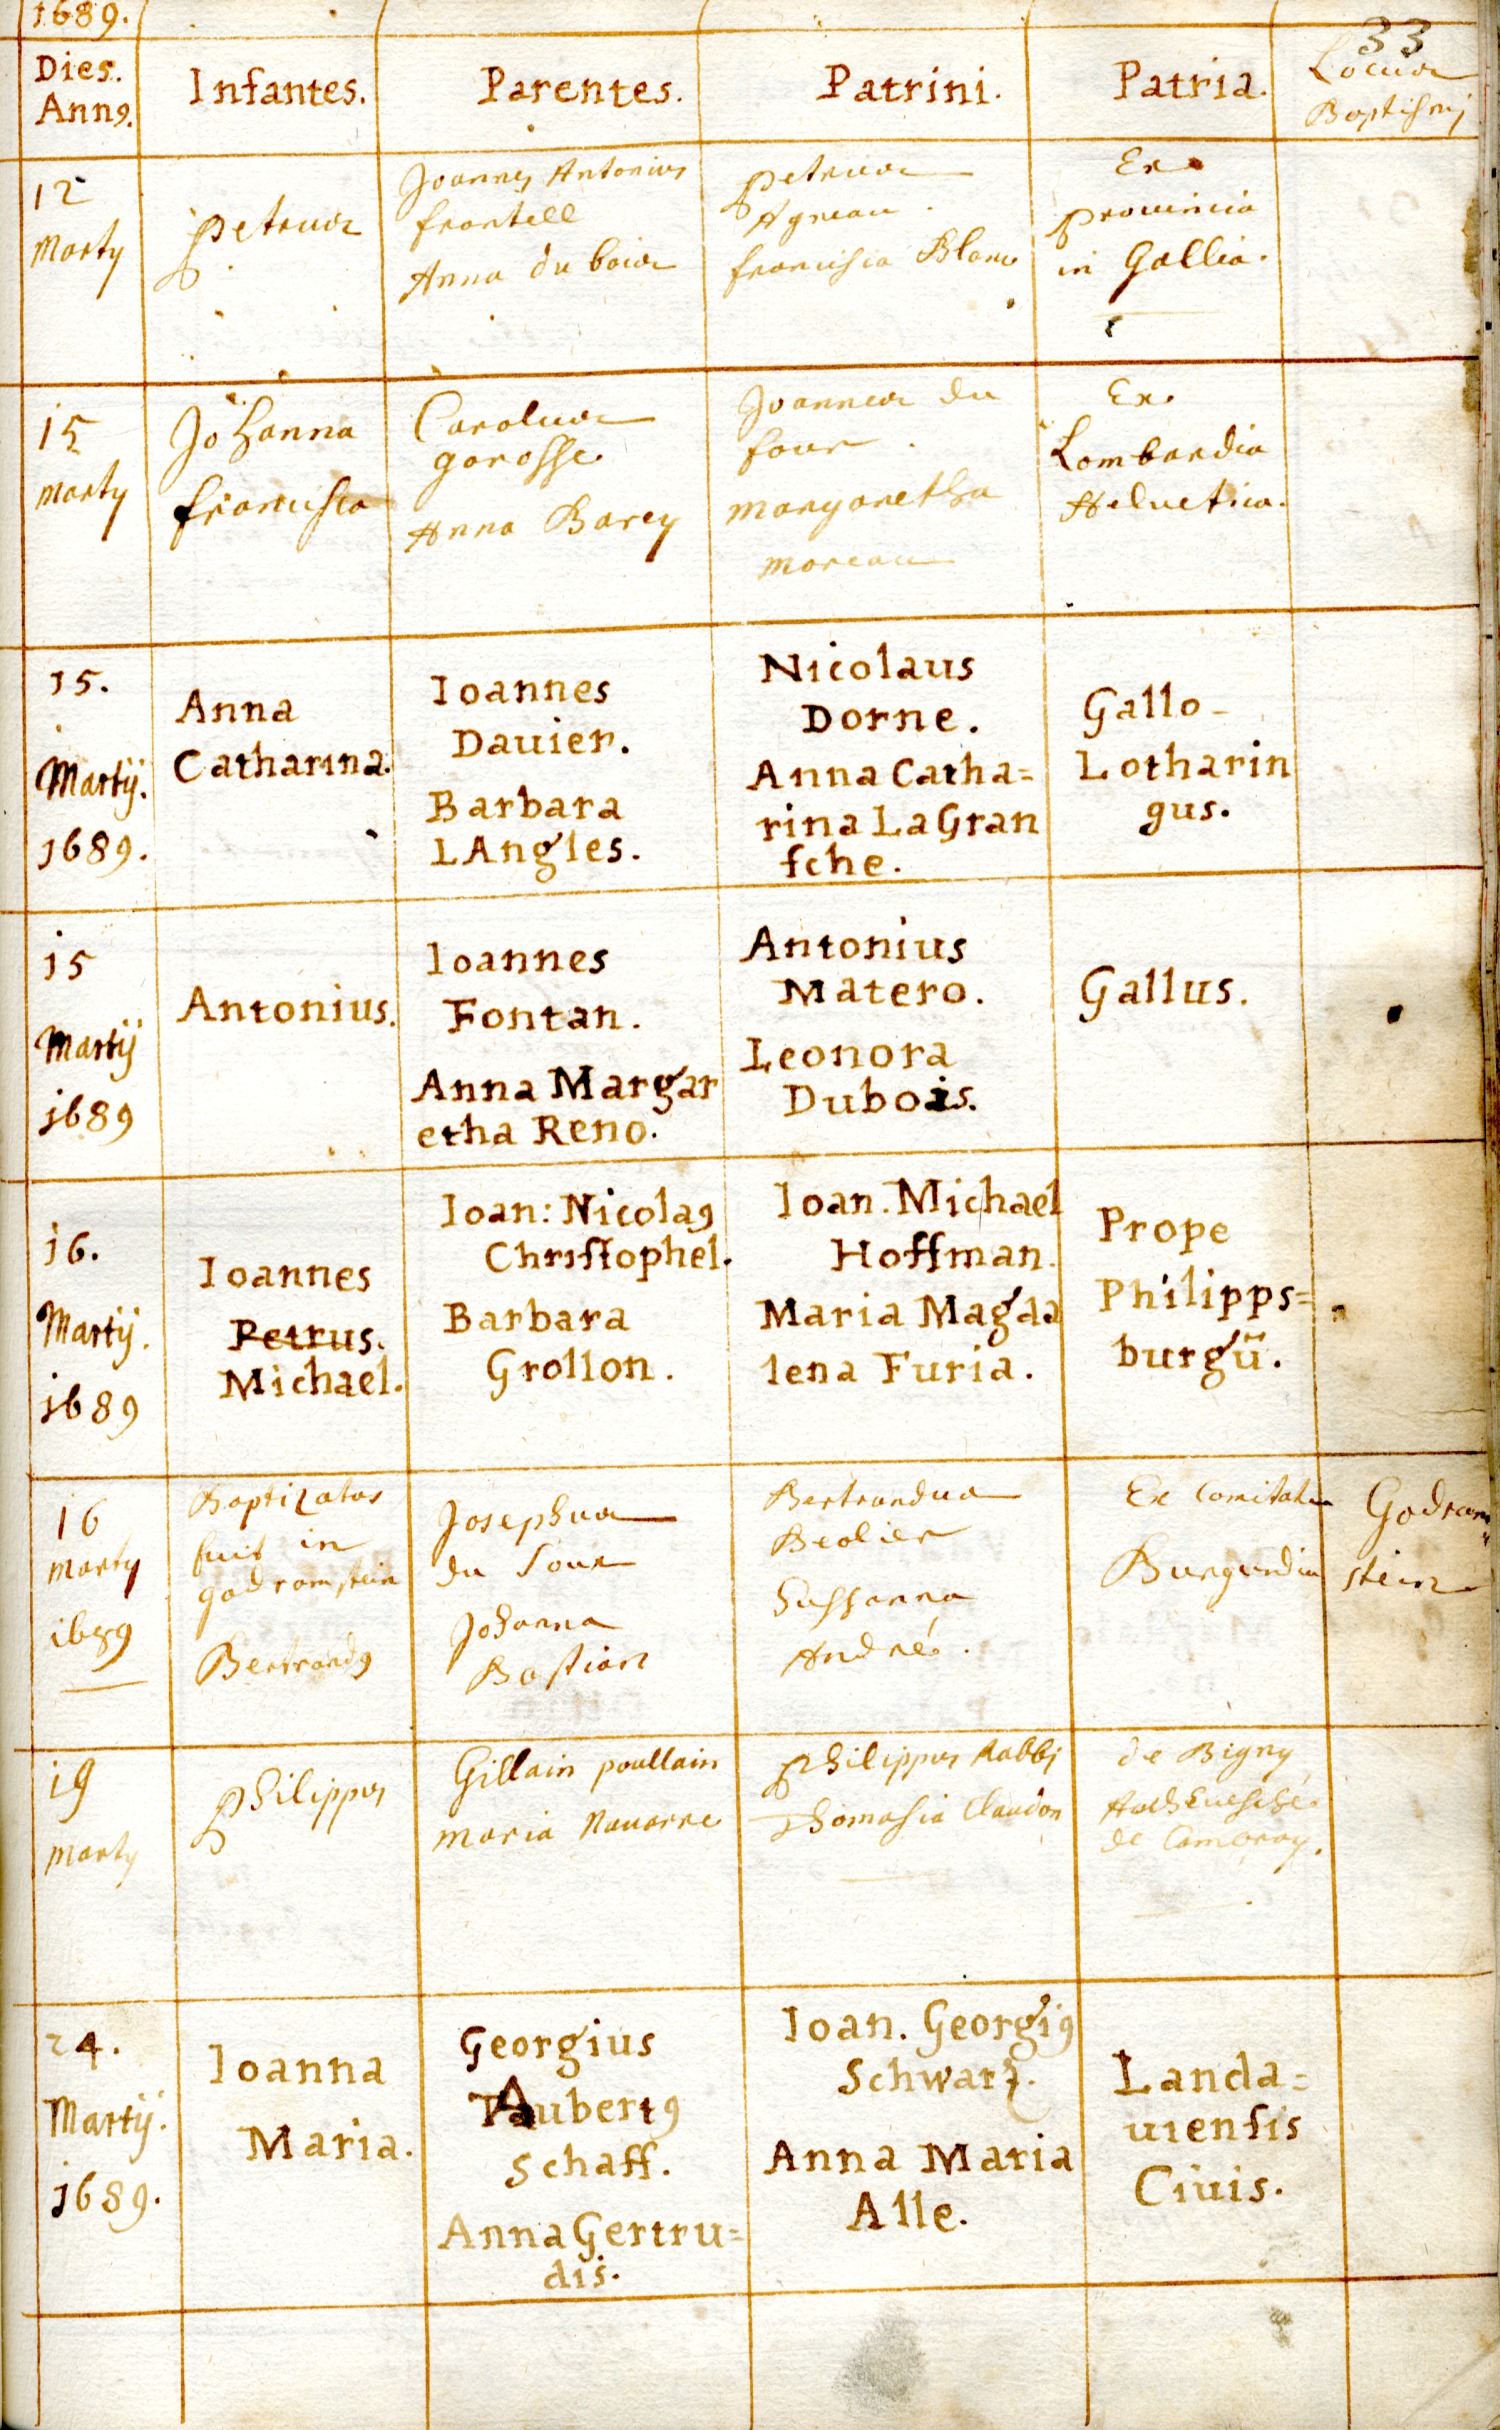 1689.
33
Dies.
Anno.
Infantes.
Parentes.
Patrini.
Patria.
Locus
Baptismj
12
Marty
Petrus
Joannes Antonius
frantell
Anna du bois
Petrus
Agneau.
francisca Blanc
Ex
provincia
in Gallia.
15
Marty
Johanna
francisca
Carolus
garosse
Anna Barey
Joannes du
four.
Margaretha
Moreau
Ex
Lombardia
Helvetica.
15.
Martij.
1689.
Anna
Catharina.
Ioannes
Dauier.
Barbara
LAngles.
Nicolaus
Dorne.
Anna Catha=
rina LaGran
sche.
Gallo-
Lotharin
gus.
15
Martij
1689
Antonius.
Ioannes
Fontan.
Anna Margar
etha Reno.
Antonius
Matero.
Leonora
Dubois.
Gallus.
16.
Martij.
1689
Ioannes
Petrus.
Michael.
Ioan: Nicolaꝰ
Christophel.
Barbara
Grollon.
Ioan. Michael
Hoffman.
Maria Magda
lena Furia.
Prope
Philipps=
burgū.
16
Marty
1689
Baptizatus
fuit in
godramstein
Bertrandꝰ
Josephus
du four
Johanna
Bastian
Bertrandus
Beolier
Sussanna
André.
Ex Comitatu
Burgundia
Godram"
stein
19
Marty
Philippus
Gillain poullain
Maria Nauarre
Philippus Rabbj
Thomasia Claudon
de Bigny
de Cambray.
24.
Martij.
1689.
Ioanna
Maria.
Georgius
TAubertꝰ
Schaff.
Anna Gertru=
dis.
Ioan. Georgiꝰ
Schwarz.
Anna Maria
Alle.
Landa=
uiensis
Ciuis.